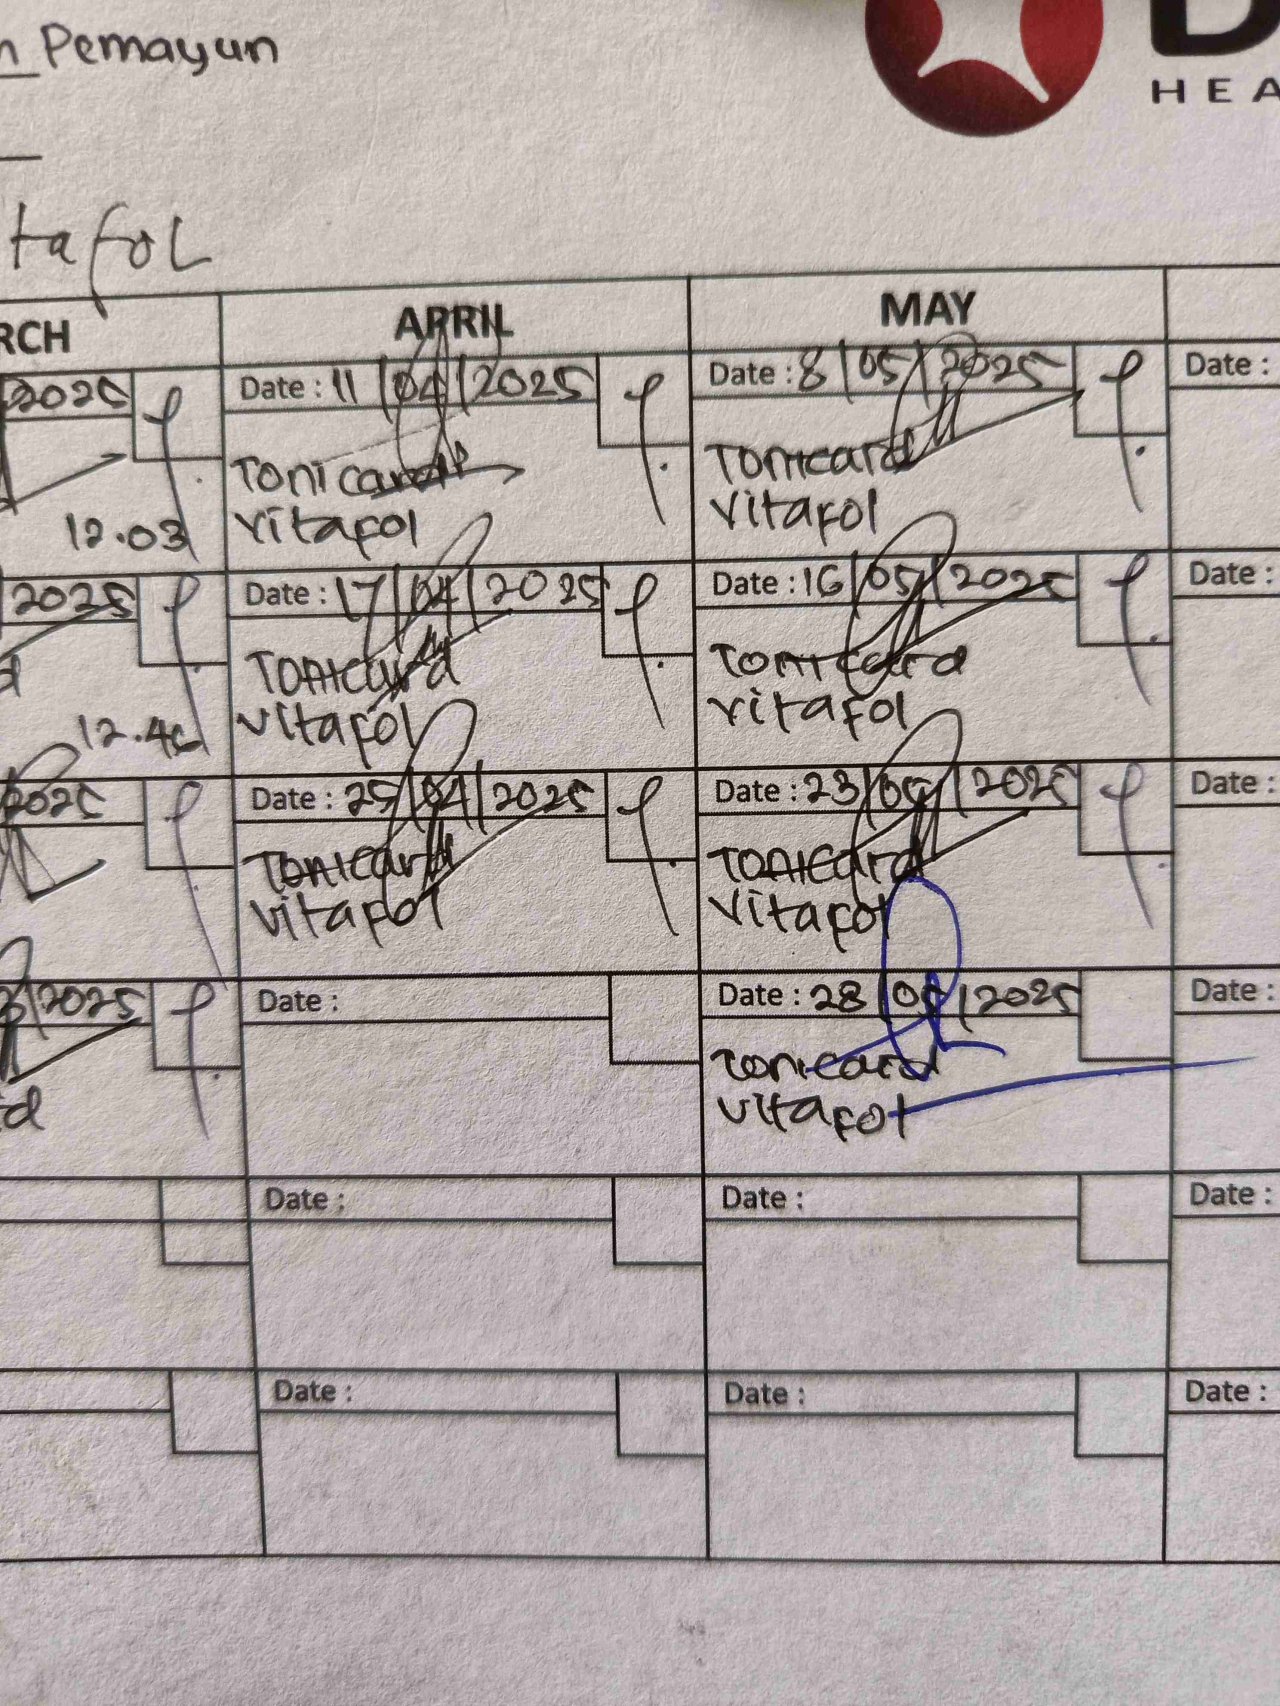 Pemayun
HEA
tafoL
RCH
APRIL
MAY
2025
Date : 11/04/2025
Date : 8/05/2025
Date :
Tonicard
Tonicard
12.03
vitafol
vitafol
2025
Date : 17/04/2025
Date : 16/05/2025
Date :
Tonicard
Tonicard
12.46
vitafol
vitafol
2025
Date : 25/04/2025
Date : 23/05/2025
Date :
Tonicard
Tonicard
vitafol
vitafol
/2025
Date :
Date : 28/05/2025
Date :
Tonicard
d
vitafol
Date :
Date :
Date :
Date :
Date :
Date :